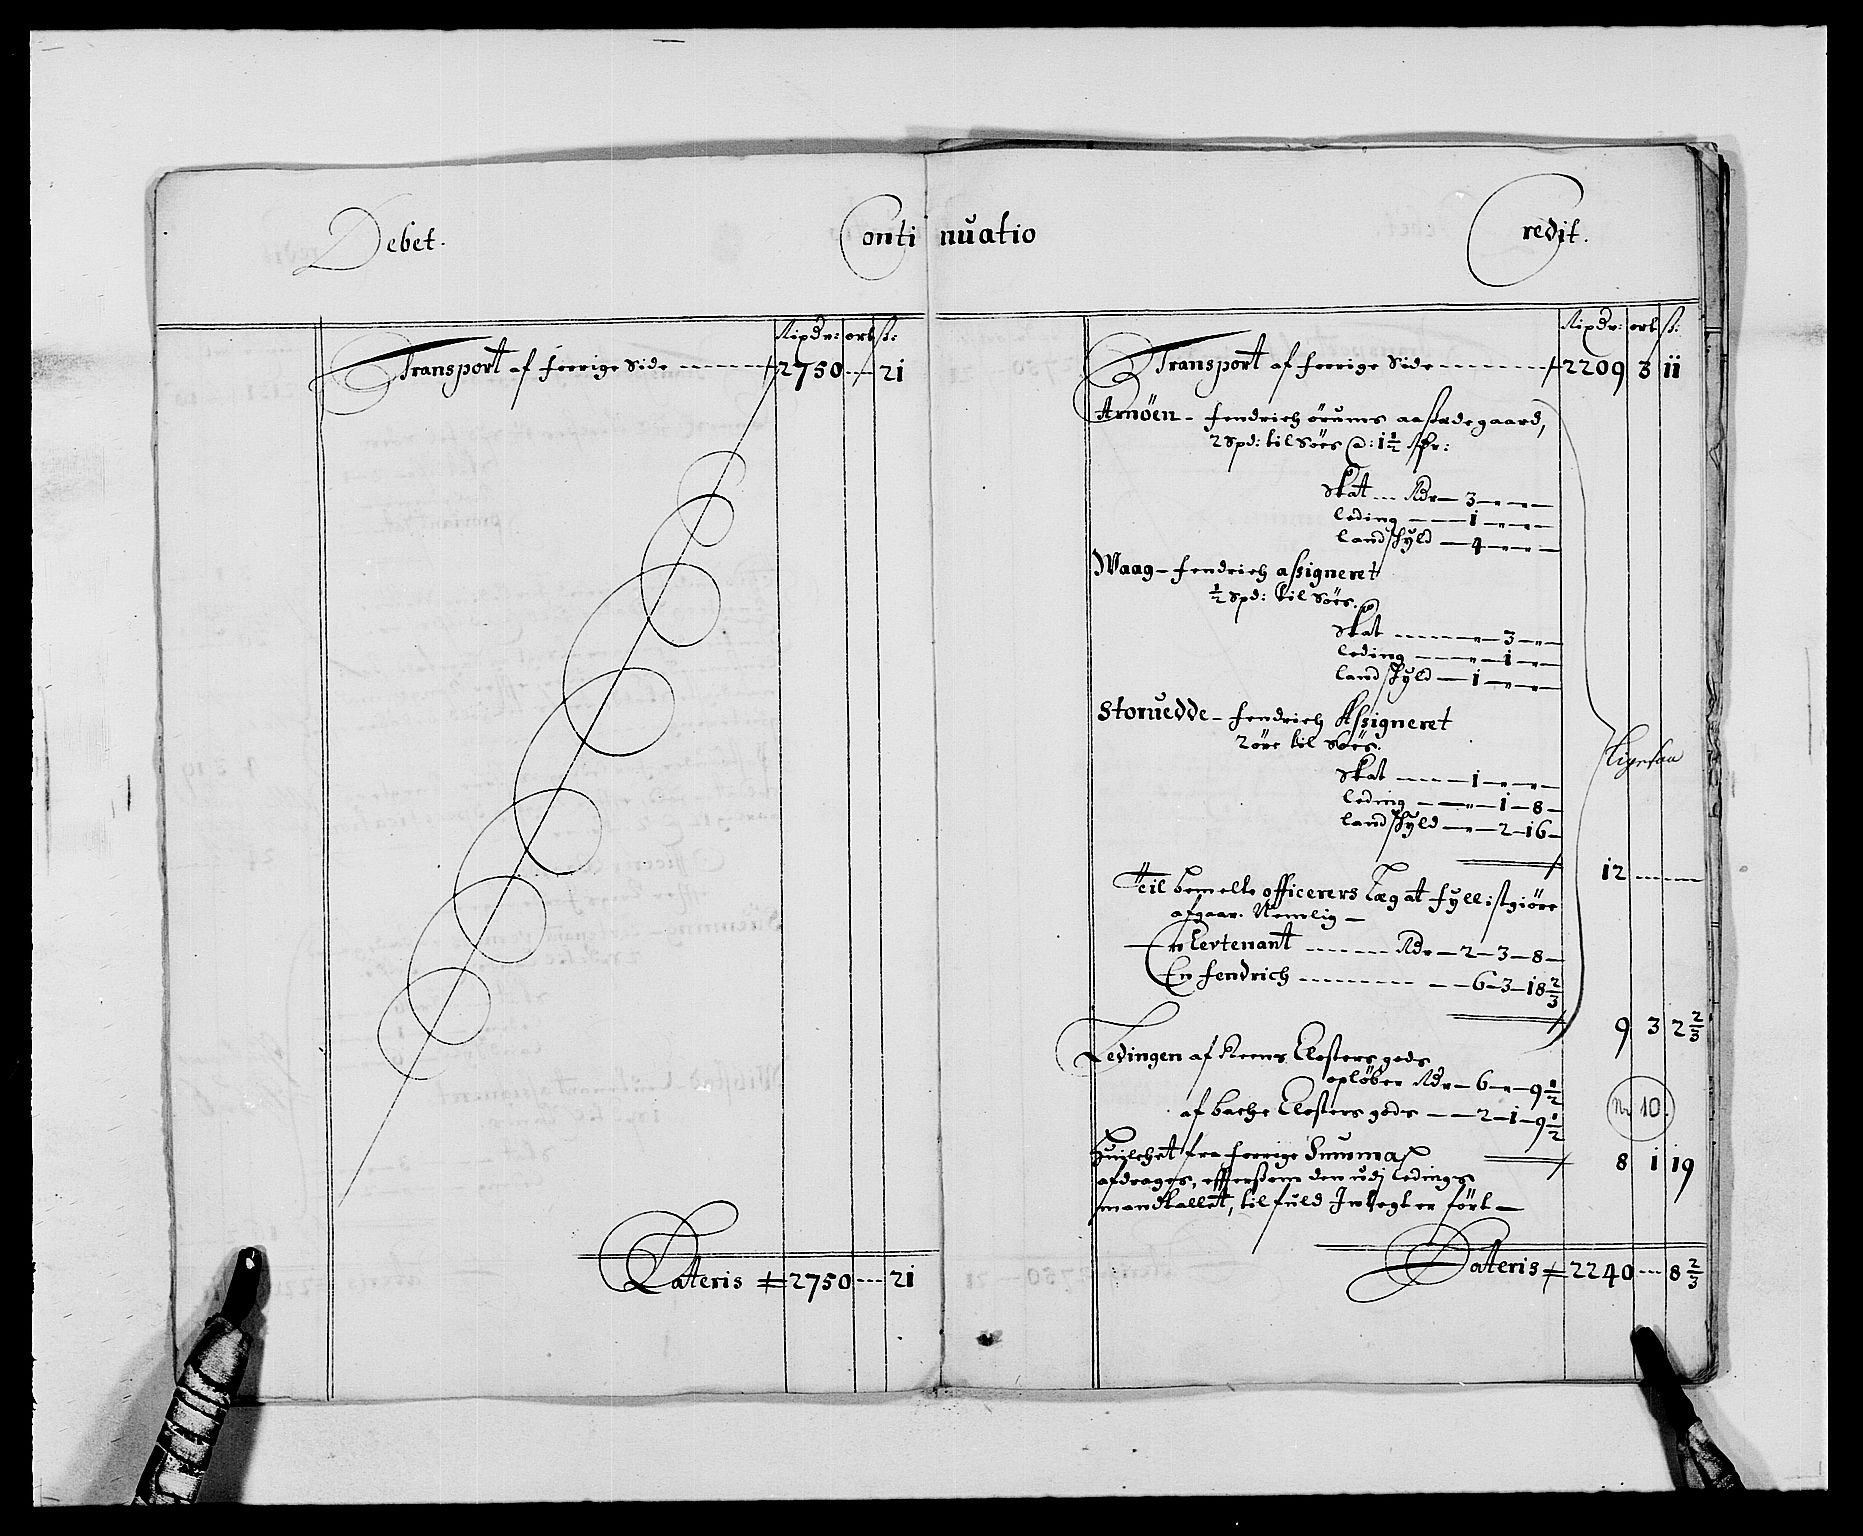 Debet.
Continuatio
Credit.
Rixdr: ort s:
Transport af forrige Side ------ 2750 --- 21
Lateris 2750 --- 21
Rixdr: ort s:
Transport af forrige Side -------- 2209 3 11
Arnöen - fendrich örums aassædegaard,
2 Spd: til Söes @: 1½
Skat --- Rdr - 3 - " - " -
leding --- 1 - " - " -
landskyld - 4 - " - " -
Waag - fendrich assigneret
½ Spd: til Söes.
Skat ------ " - 3 - " -
leding ---- " - 1 - " -
landskyld - 1 - " - " -
Storuedde - fendrich Assigneret
2 öre til Söes.
Skat ---- 1 - " - " -
leding --- " - 1 - 8 -
landskyld - " - 2 - 16 -
12 ------
Til bemelte officerers Læg at fyllistgiöre
afgaar. Nemlig -
En Levtenant ------ Rdr - 2 - 3 - 8 -
En fendrich --------- 6 - 3 - 18 2/3
9 3 2 2/3
Ledingen af Reens Closters gods
oplöber Rdr - 6 - " - 9½
af bache Closters gods -- 2 - 1 - 9½
No 10.
Huilchet fra forrige Summa
8 1 19
afdrages, effterssom den udj ledings
mandtallet, til fuld Indtegt er fört -
Lateris 2240 --- 8 2/3